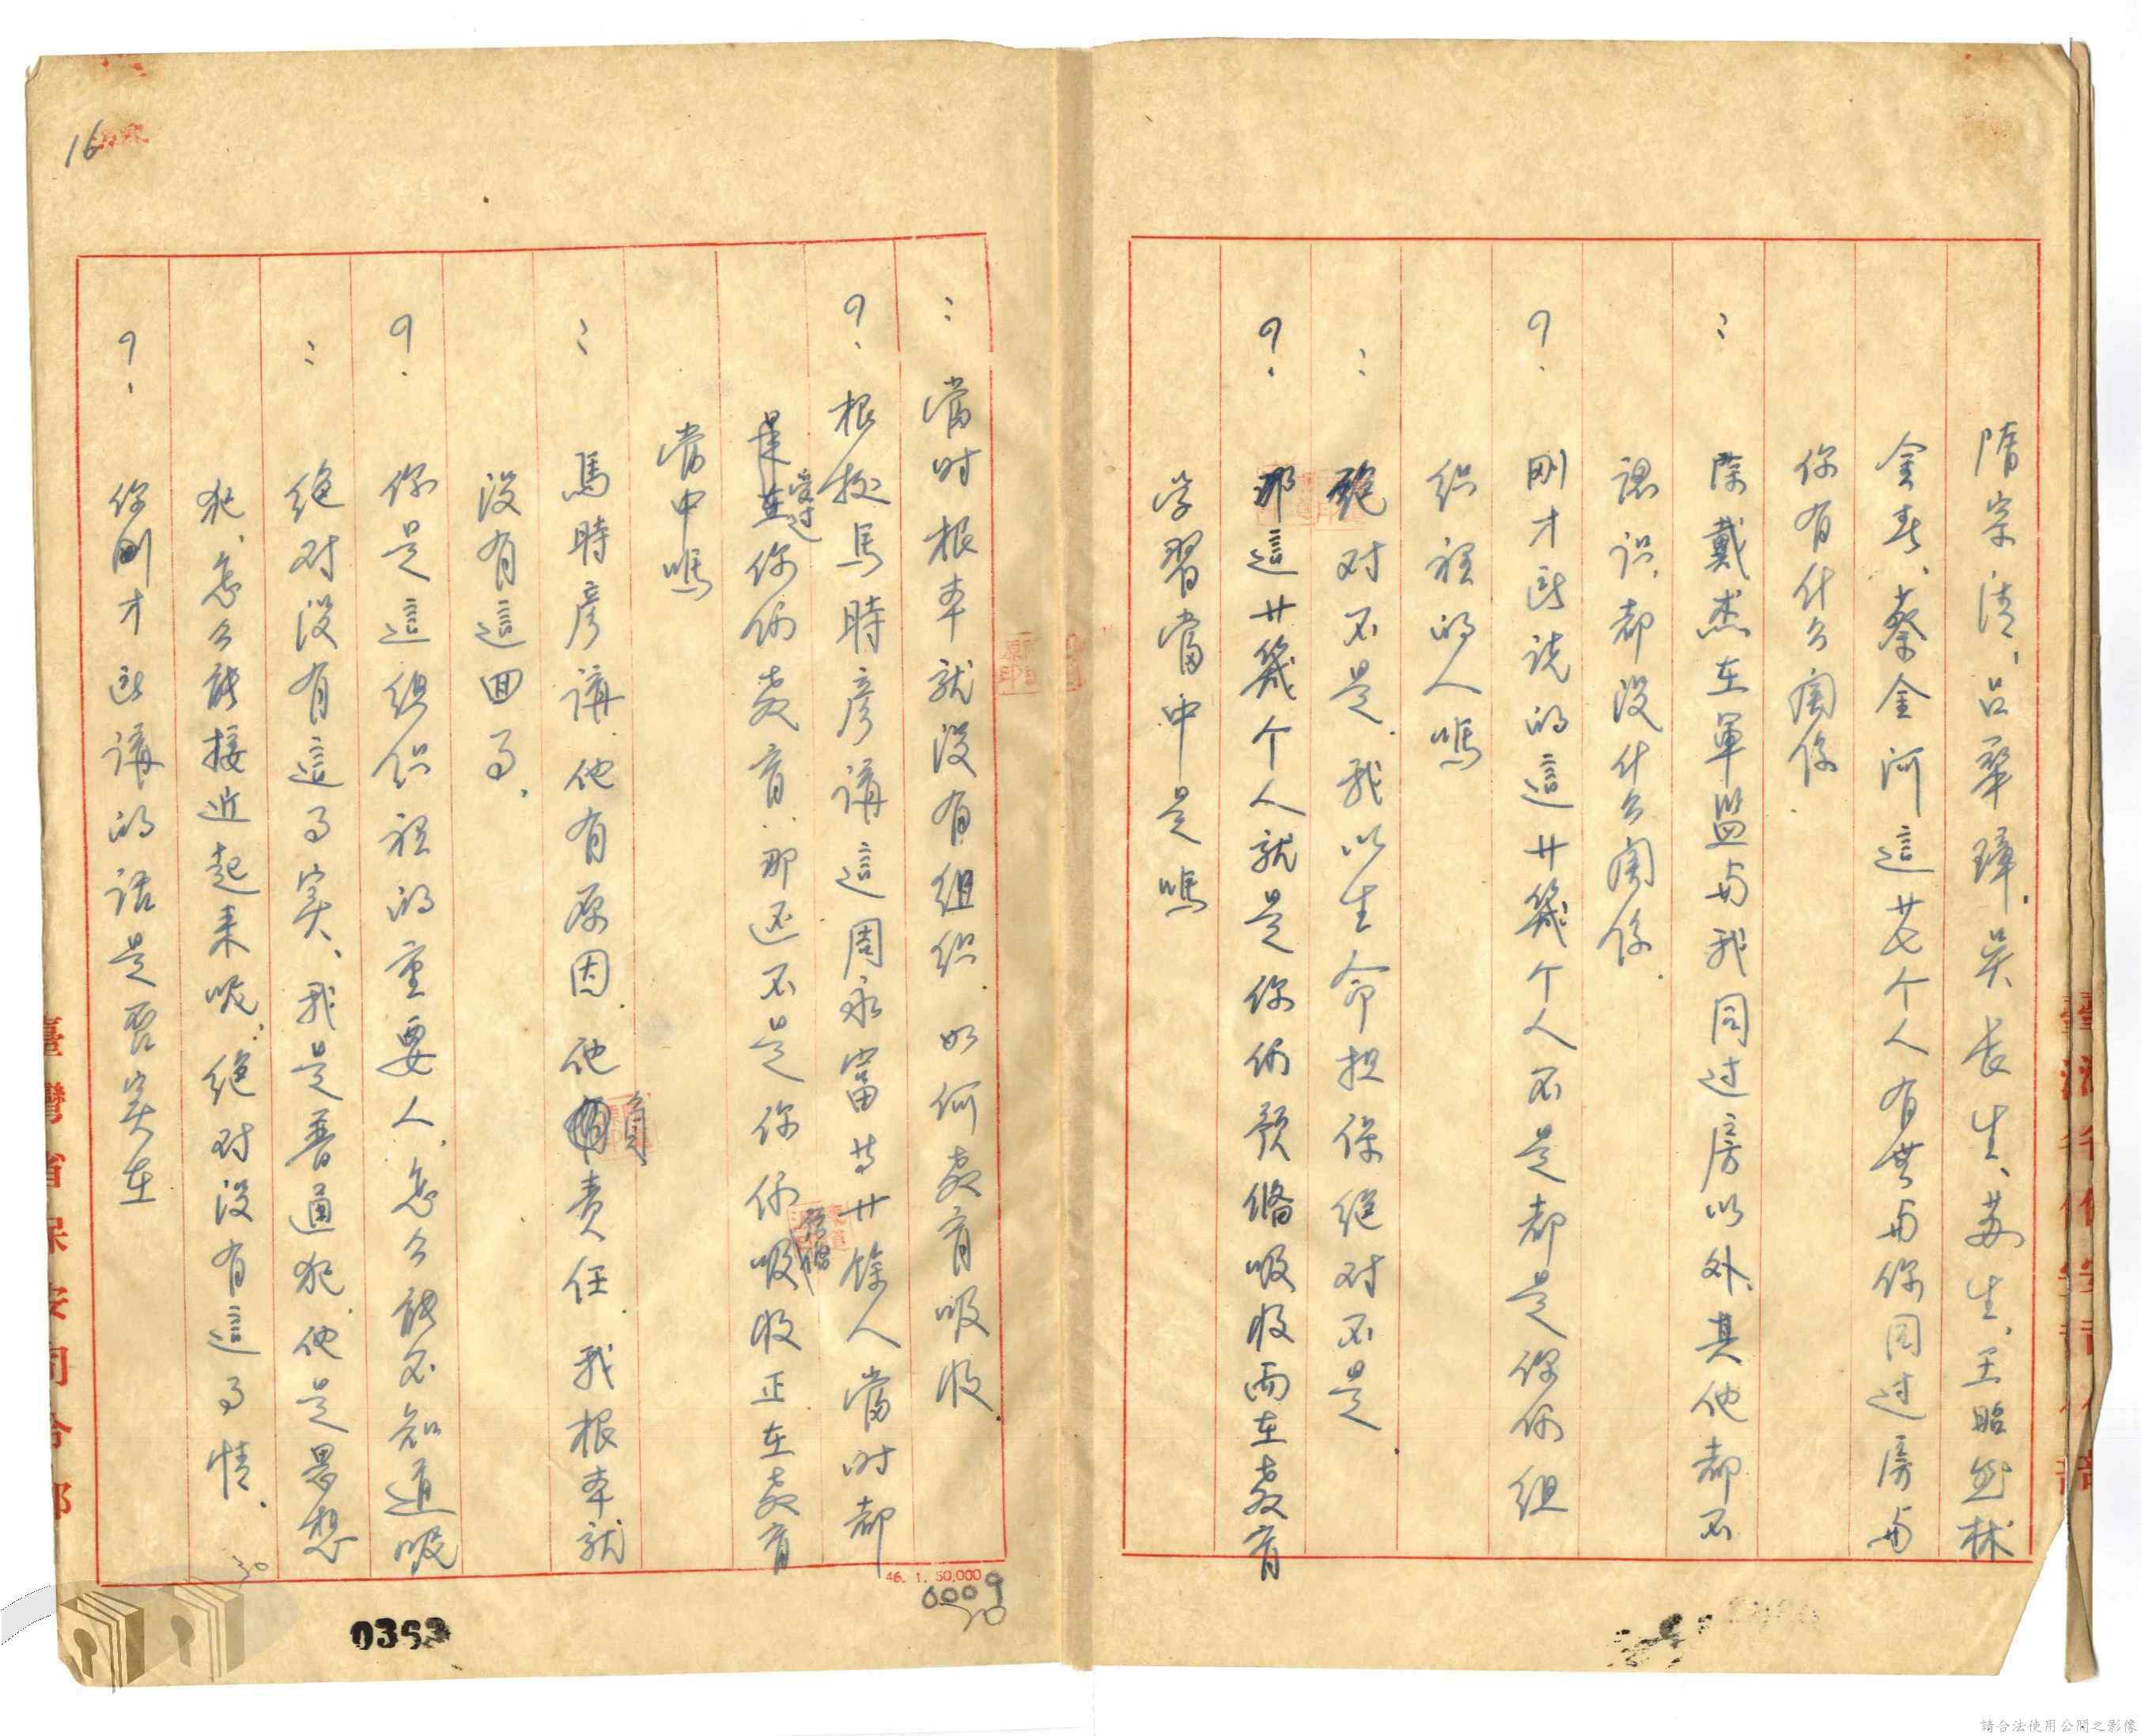 隋宗清、呂華璋、吴长生、苏生、王昭΄林
金΄、蔡金河這廿七个人有無与你同过房与
你有什么関係.
: 除戴杰在軍監与我同过房以外,其他都不
認识,都没什么関係.
?. 刚才所说的這廿幾个人不是都是你们组
织裡的人嗎
: 绝对不是,我以生命担保绝对不是
?. 那這廿幾个人就是你们预备吸收而在教育
学習當中是嗎
: 當时根本就没有组织.如何教育吸收
?. 根据馬時彦講這周永富等廿餘人當时都
是受过你们教育.那还不是你们预備吸收正在教育
當中嗎
: 馬時彦講.他有原因.他負責任.我根本就
没有這回事.
?. 你是這组织裡的重要人,怎么能不知道呢
: 绝对没有這事实、我是普通犯,他是思想
犯,怎么能接近起来呢,绝对没有這事情.
?. 你刚才所講的话是否实在
16
臺灣省保安司令部
46. 1. 50,000
6009
30
30
0363
請合法使用公開之影像